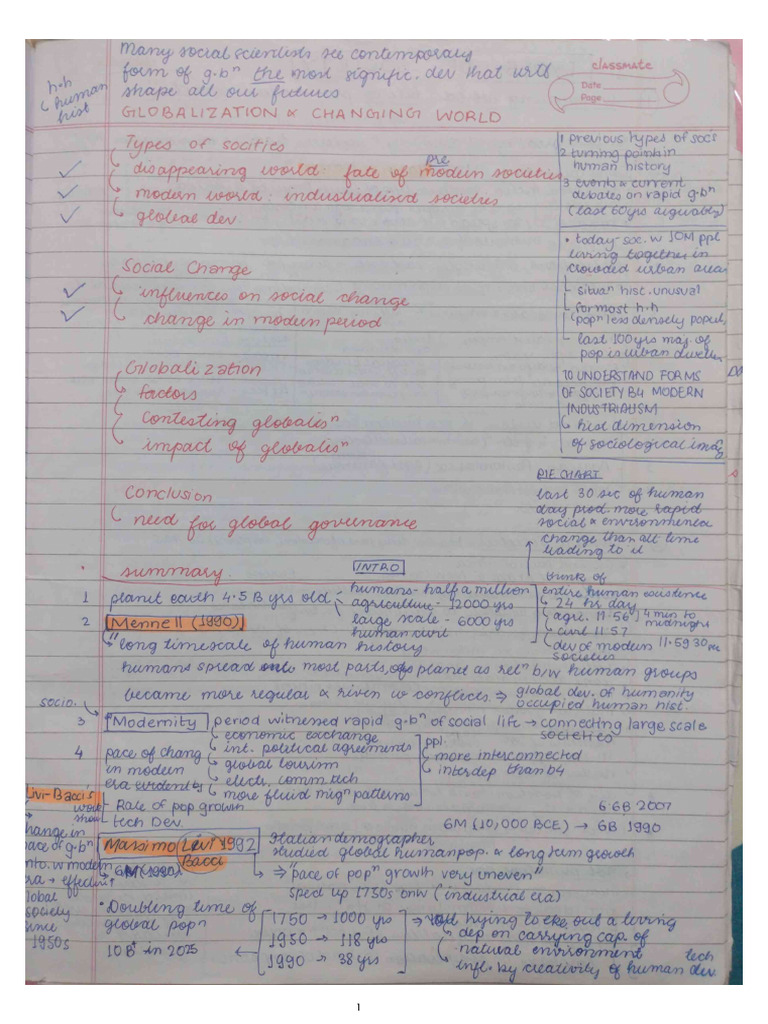 Many social scientists see contemporary
form of g.bⁿ the most signific. dev that will
shape all our futures
h.h
human
hist
classmate
Date
Page
GLOBALIZATION & CHANGING WORLD
Types of socities
disappearing world: fate of pre modern societies
modern world: industrialised societies
global dev.
1 previous types of soci
2 turning points in
human history
3 events & current
debates on rapid g.bⁿ
(last 60yrs arguably)
• today-soc. w 10M ppl
living together in
crowded urban area
situaⁿ hist. unusual
for most h.h
(popⁿ less densely popul
last 100 yrs maj. of
pop is urban dwelle
Social Change
influences on social change
change in modern period
Globalization
factors
contesting globalisⁿ
impact of globalisⁿ
TO UNDERSTAND FORMS
OF SOCIETY B4 MODERN
INDUSTRIALISM
hist dimension
of sociological imag
Conclusion
need for global governance
PIE CHART
last 30 sec of human
day prod. more rapid
social & environmental
change than all time
leading to it
summary.
INTRO
1 planet earth 4.5 B yrs old
humans - half a million
agriculture - 12000 yrs
large scale - 6000 yrs
human civil
think of
entire human existence
24 hr day
agri. 11.56
civil 11:57
4 min to
midnight
dev of modern 11.59 30 sec
societies
2 Mennell (1990)
" long timescale of human history
humans spread onto most parts of planet as relⁿ b/w human groups
became more regular & riven w conflicts ⇒ global dev. of humanity
occupied human hist.
socio.
3 Modernity period witnessed rapid g.bⁿ of social life → connecting large scale
societies
4 pace of chang
in modern
era evidently
economic exchange
int. political agreements
global tourism
elect. comm tech
more fluid migⁿ patterns
ppl.
more interconnected
interdep than b4
Livi-Bacci's
work
show
Rate of pop growth
tech Dev.
6.6B 2007
6M (10,000 BCE) → 6B 1990
change in
pace of g.bⁿ
into. w modern
era → effectin
global
society
since
1950s
Massimo Livi 1992
Bacci
Italian demographer
studied global human pop. & long term growth
6M (1990)
⇒ "pace of popⁿ growth very uneven"
sped up 1750s onw (industrial era)
• Doubling time of
global popⁿ
10B⁺ in 2025
1750 → 1000 yrs
1950 → 118 yrs
1990 → 38 yrs
trying to eke out a living
dep on carrying cap. of
natural environment
infl. by creativity of human tech dev.
1